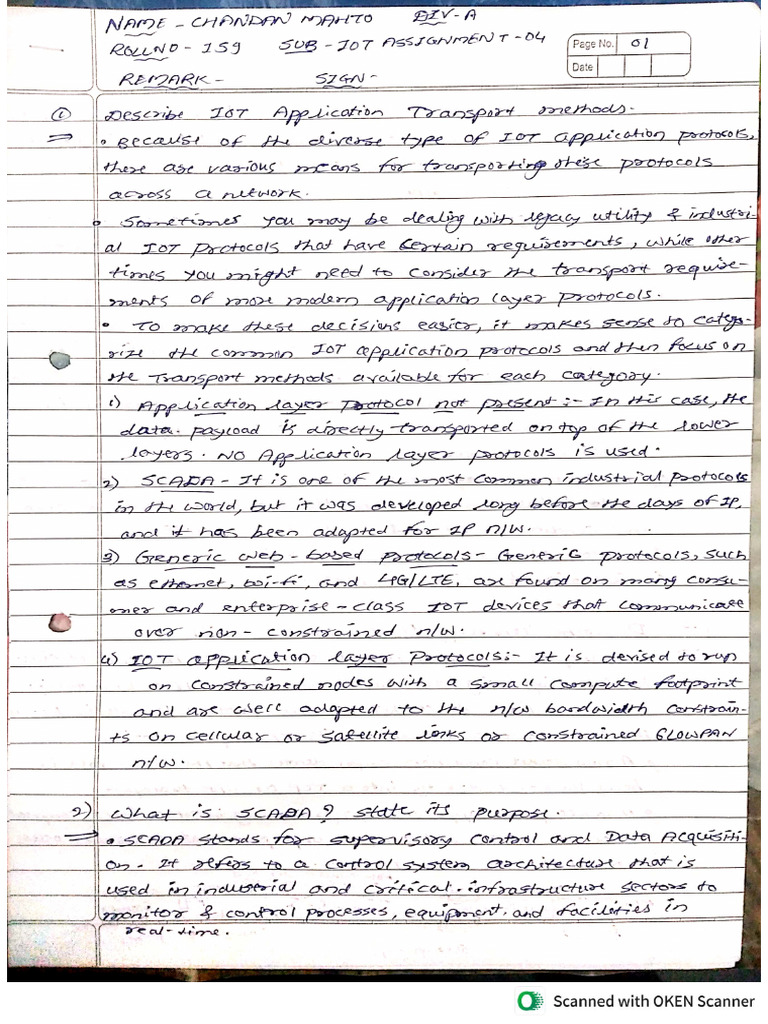 NAME - CHANDAN MAHTO DIV-A
ROLLNO - 159 SUB - IOT ASSIGNMENT - 04
Page No. 01
Date
REMARK - SIGN -
① Describe IOT Application Transport methods.
⇒ • Because of the diverse type of IOT application protocols,
there are various means for transporting these protocols
across a network.
• Sometimes you may be dealing with legacy utility & industri-
al IOT protocols that have certain requirements, while other
times you might need to consider the transport require-
ments of more modern application layer protocols.
• To make these decisions easier, it makes sense to catego-
rize the common IOT application protocols and then focus on
the Transport methods available for each category.
1) Application layer Protocol not present :- In this case, the
data payload is directly transported on top of the lower
layers. NO Application layer protocols is used.
2) SCADA - It is one of the most common industrial protocols
in the world, but it was developed long before the days of IP,
and it has been adapted for IP n/w.
3) Generic web - based protocols - Generic protocols, such
as ethernet, wi-fi, and 4G/LTE, are found on many consu-
mer and enterprise - class IOT devices that communicate
over non - constrained n/w.
4) IOT application layer Protocols :- It is devised to run
on constrained nodes with a small compute footprint
and are well adapted to the n/w bandwidth constrain-
ts on cellular or satellite links or constrained 6LOWPAN
n/w.
2) What is SCADA? state its purpose.
⇒ • SCADA stands for supervisory control and Data Acquisiti-
on. It refers to a control system architecture that is
used in industrial and critical infrastructure sectors to
monitor & control processes, equipment, and facilities in
real-time.
Scanned with OKEN Scanner